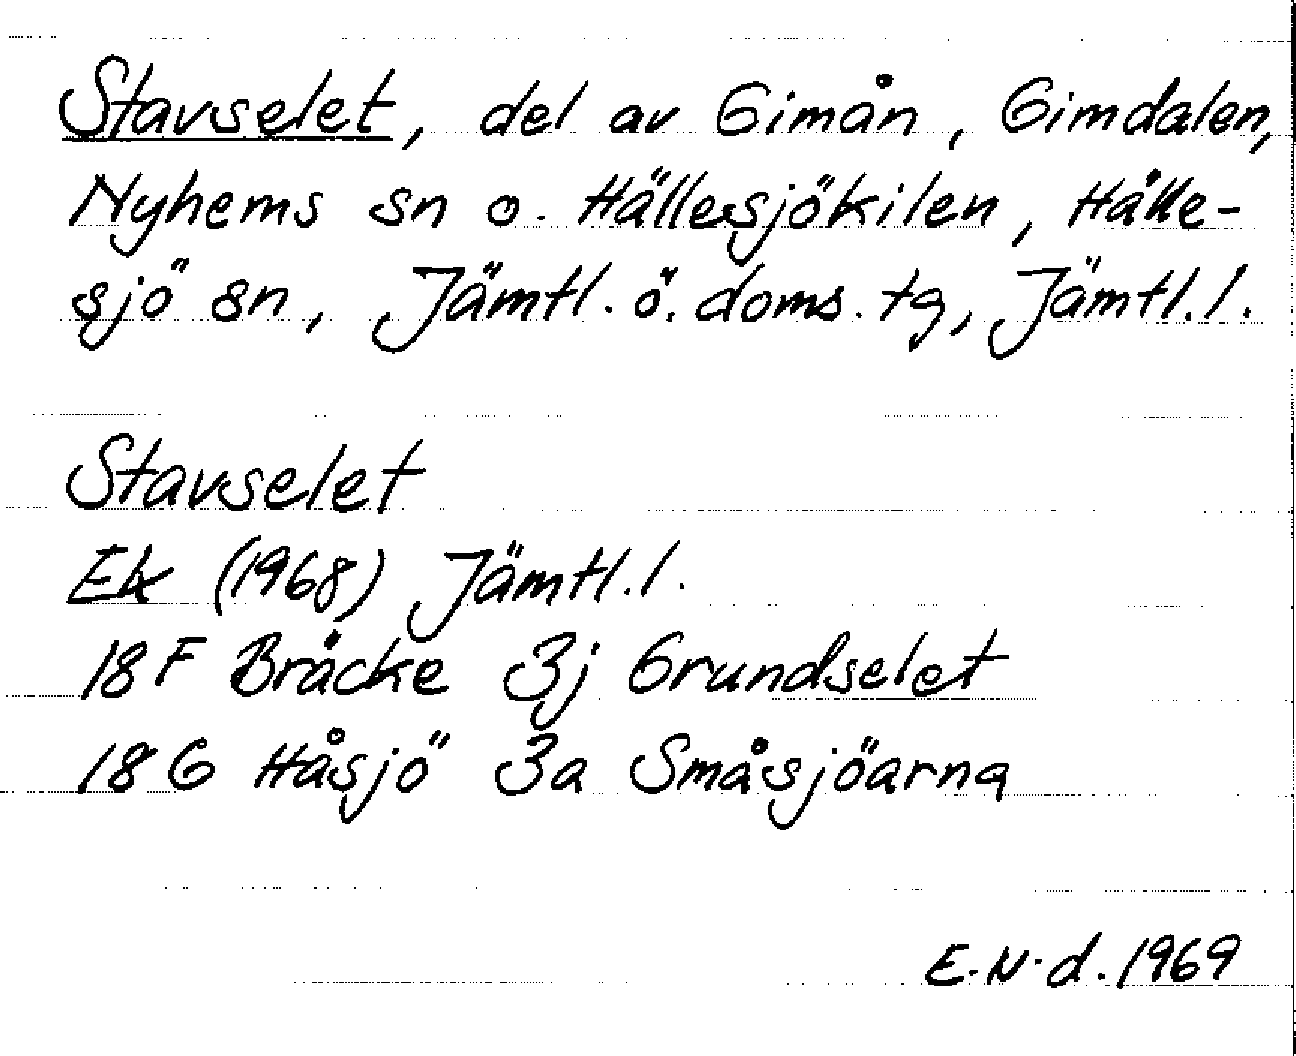 Stavselet, del av Gimån, Gimdalen,
Nyhems sn o. Hällesjökilen, Hälle-
sjö sn, Jämtl. ö. doms. tg, Jämtl. l.
Stavselet
Ek (1968) Jämtl. l.
18 F Bräcke 3j Grundselet
18 G Håsjö 3a Småsjöarna
E. N-d. 1969